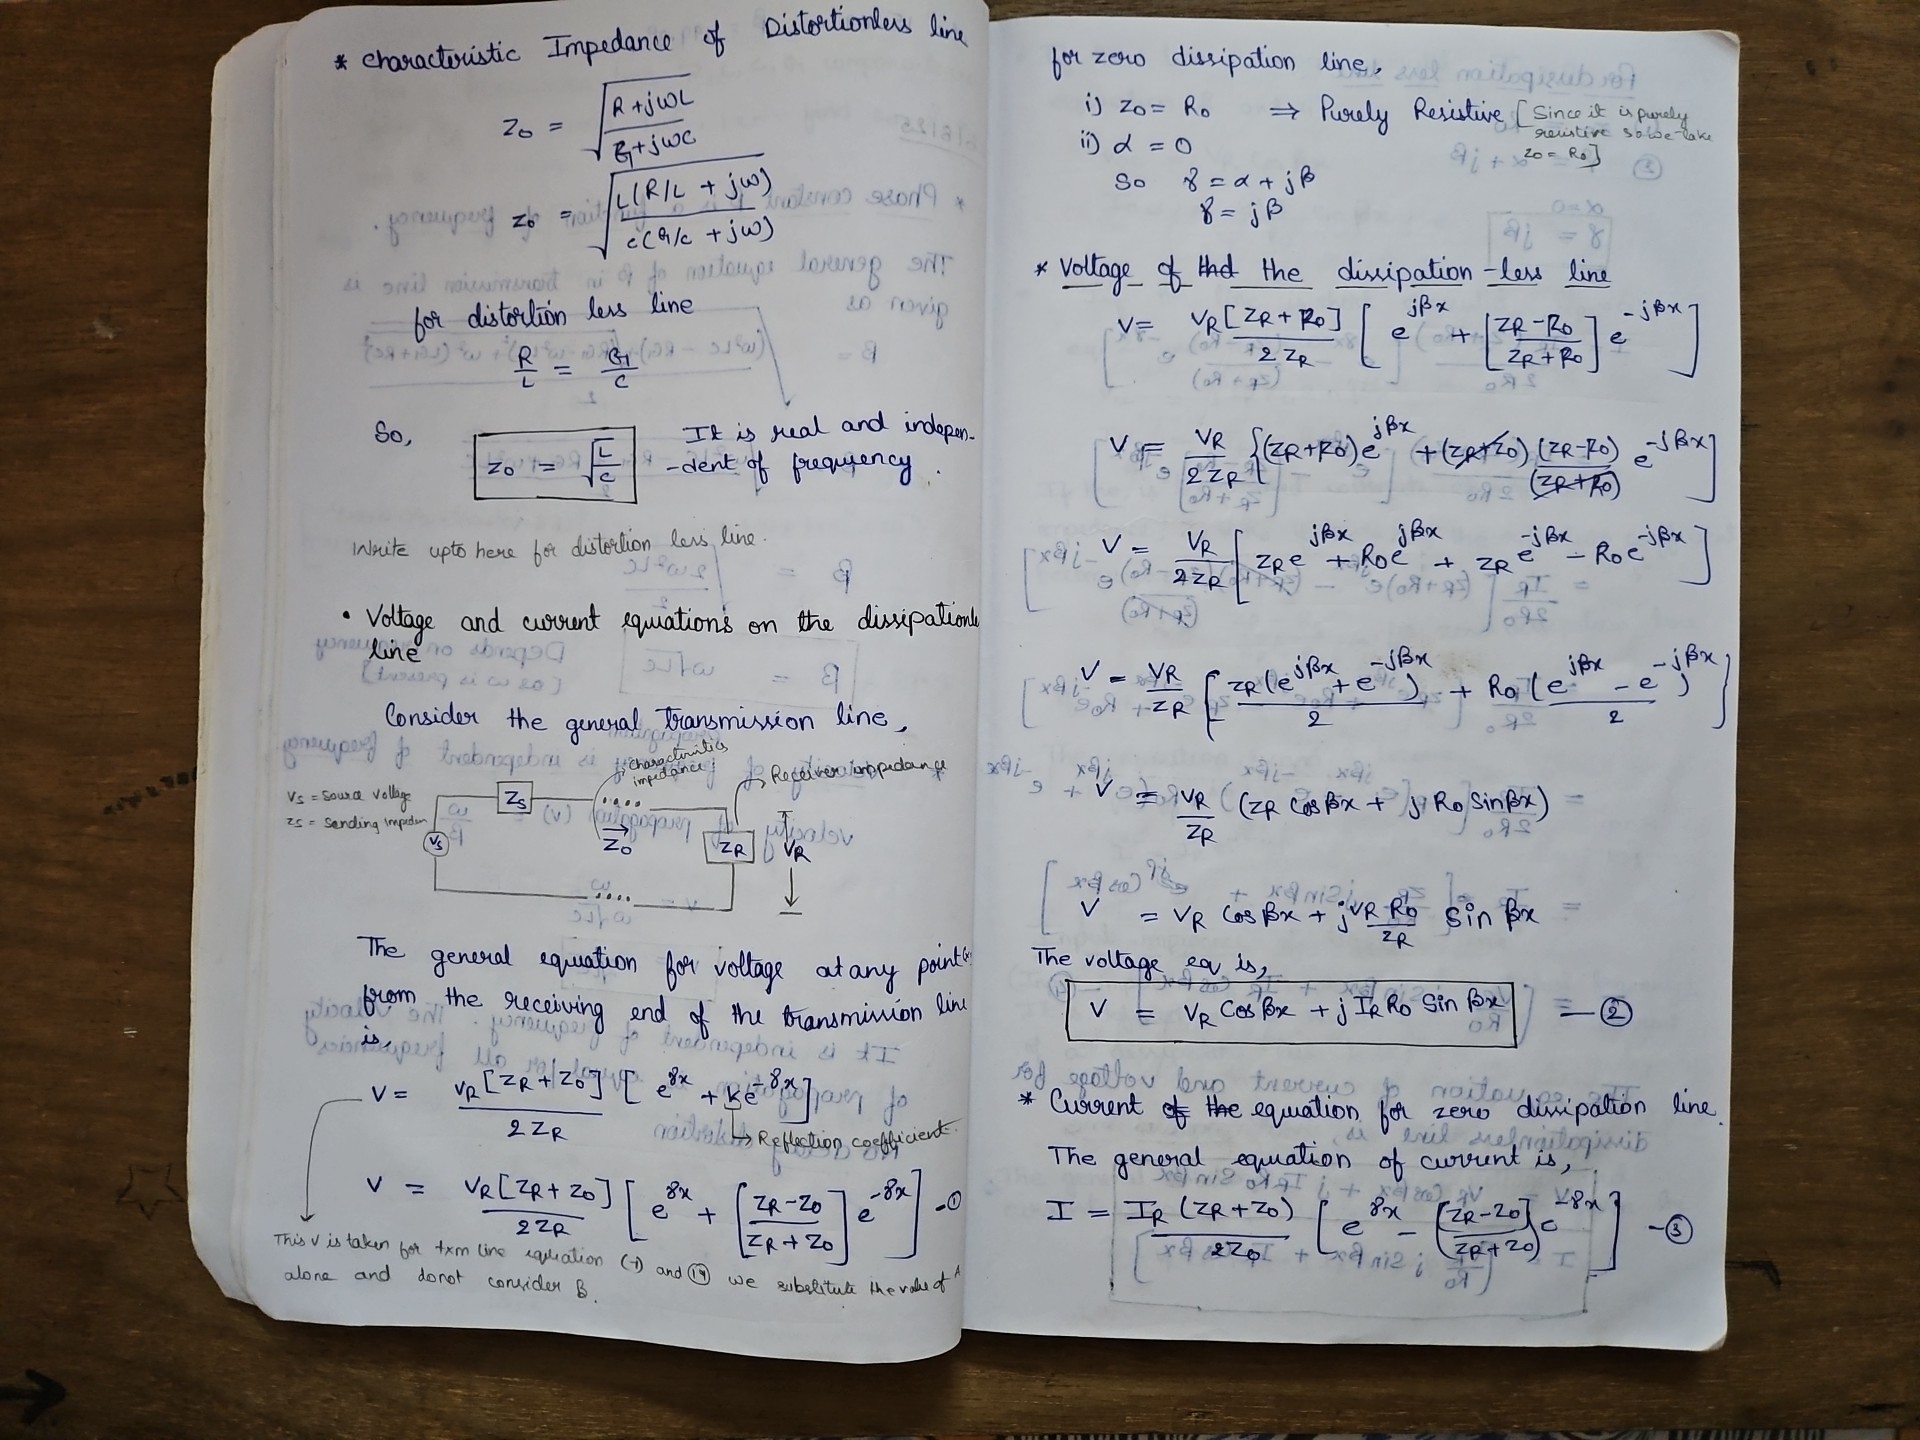 * Characteristic Impedance of Distortionless line
Z0 = √(R + jωL / G + jωC)
Z0 = √(L(R/L + jω) / C(G/C + jω))
for distortion less line
R/L = G/C
So,
Z0 = √(L/C)
It is real and indepen-
-dent of frequency.
Write upto here for distortion less line.
• Voltage and current equations on the dissipationle
line
Consider the general transmission line,
characteristics
impedance
Receiver impedance
Vs = Source Voltage
Zs = Sending Impedan
Zs
Vs
Z0
ZR
VR
The general equation for voltage at any point(x)
from the receiving end of the transmission line
is,
V = VR[ZR + Z0] / 2ZR [e^γx + ke^-γx]
→ Reflection coefficient.
V = VR[ZR + Z0] / 2ZR [e^γx + [ZR - Z0 / ZR + Z0] e^-γx] -①
This V is taken for txm line equation
and ⑭ we substitute the value of A
alone and donot consider B.
for zero dissipation line,
i) Z0 = R0 ⇒ Purely Resistive [Since it is purely
resistive so we take
Z0 = R0]
ii) α = 0
So γ = α + jβ
γ = jβ
* Voltage of the dissipation-less line
V = VR[ZR + R0] / 2ZR [e^jβx + [ZR - R0 / ZR + R0] e^-jβx]
V = VR / 2ZR {(ZR + R0)e^jβx + (ZR + Z0) (ZR - R0) / (ZR + R0) e^-jβx]
V = VR / 2ZR [ZRe^jβx + R0e^jβx + ZRe^-jβx - R0e^-jβx]
V = VR / ZR [ZR(e^jβx + e^-jβx) / 2 + R0(e^jβx - e^-jβx) / 2]
V = VR / ZR (ZR Cos βx + j R0 Sin βx)
V = VR Cos βx + j VR R0 / ZR Sin βx
The voltage eq is,
V = VR Cos βx + j IR R0 Sin βx — ②
* Current of the equation for zero dissipation line.
The general equation of current is,
I = IR (ZR + Z0) / 2Z0 [e^γx - (ZR - Z0 / ZR + Z0) e^-γx] -③